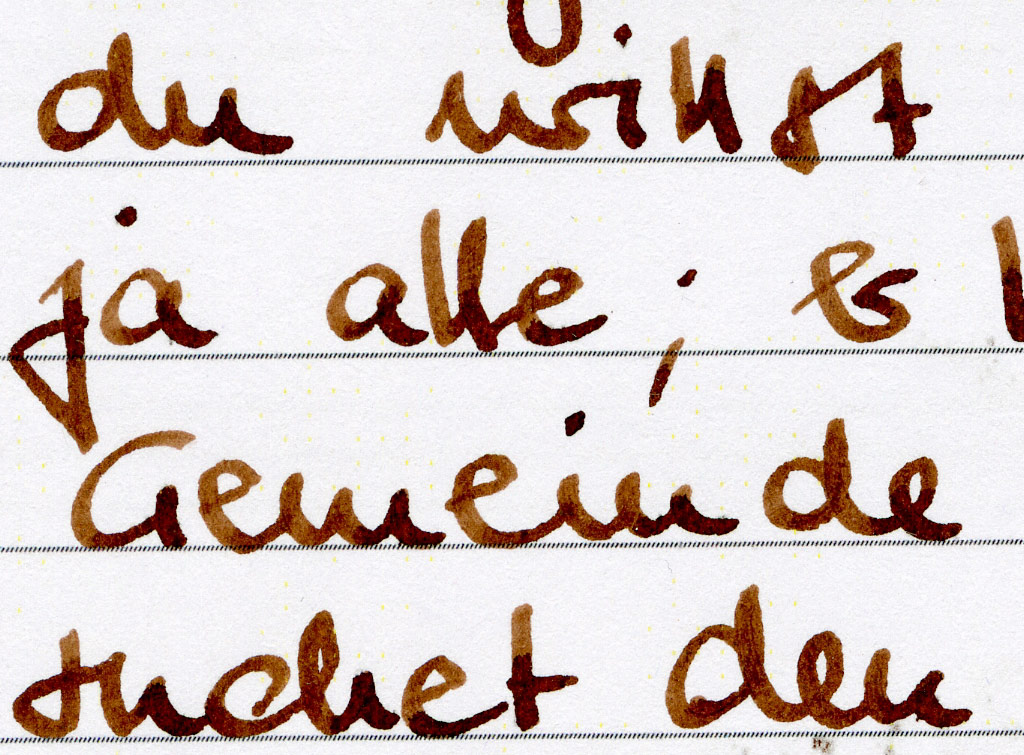 du willst
ja alle; es
Gemeinde
suchet den